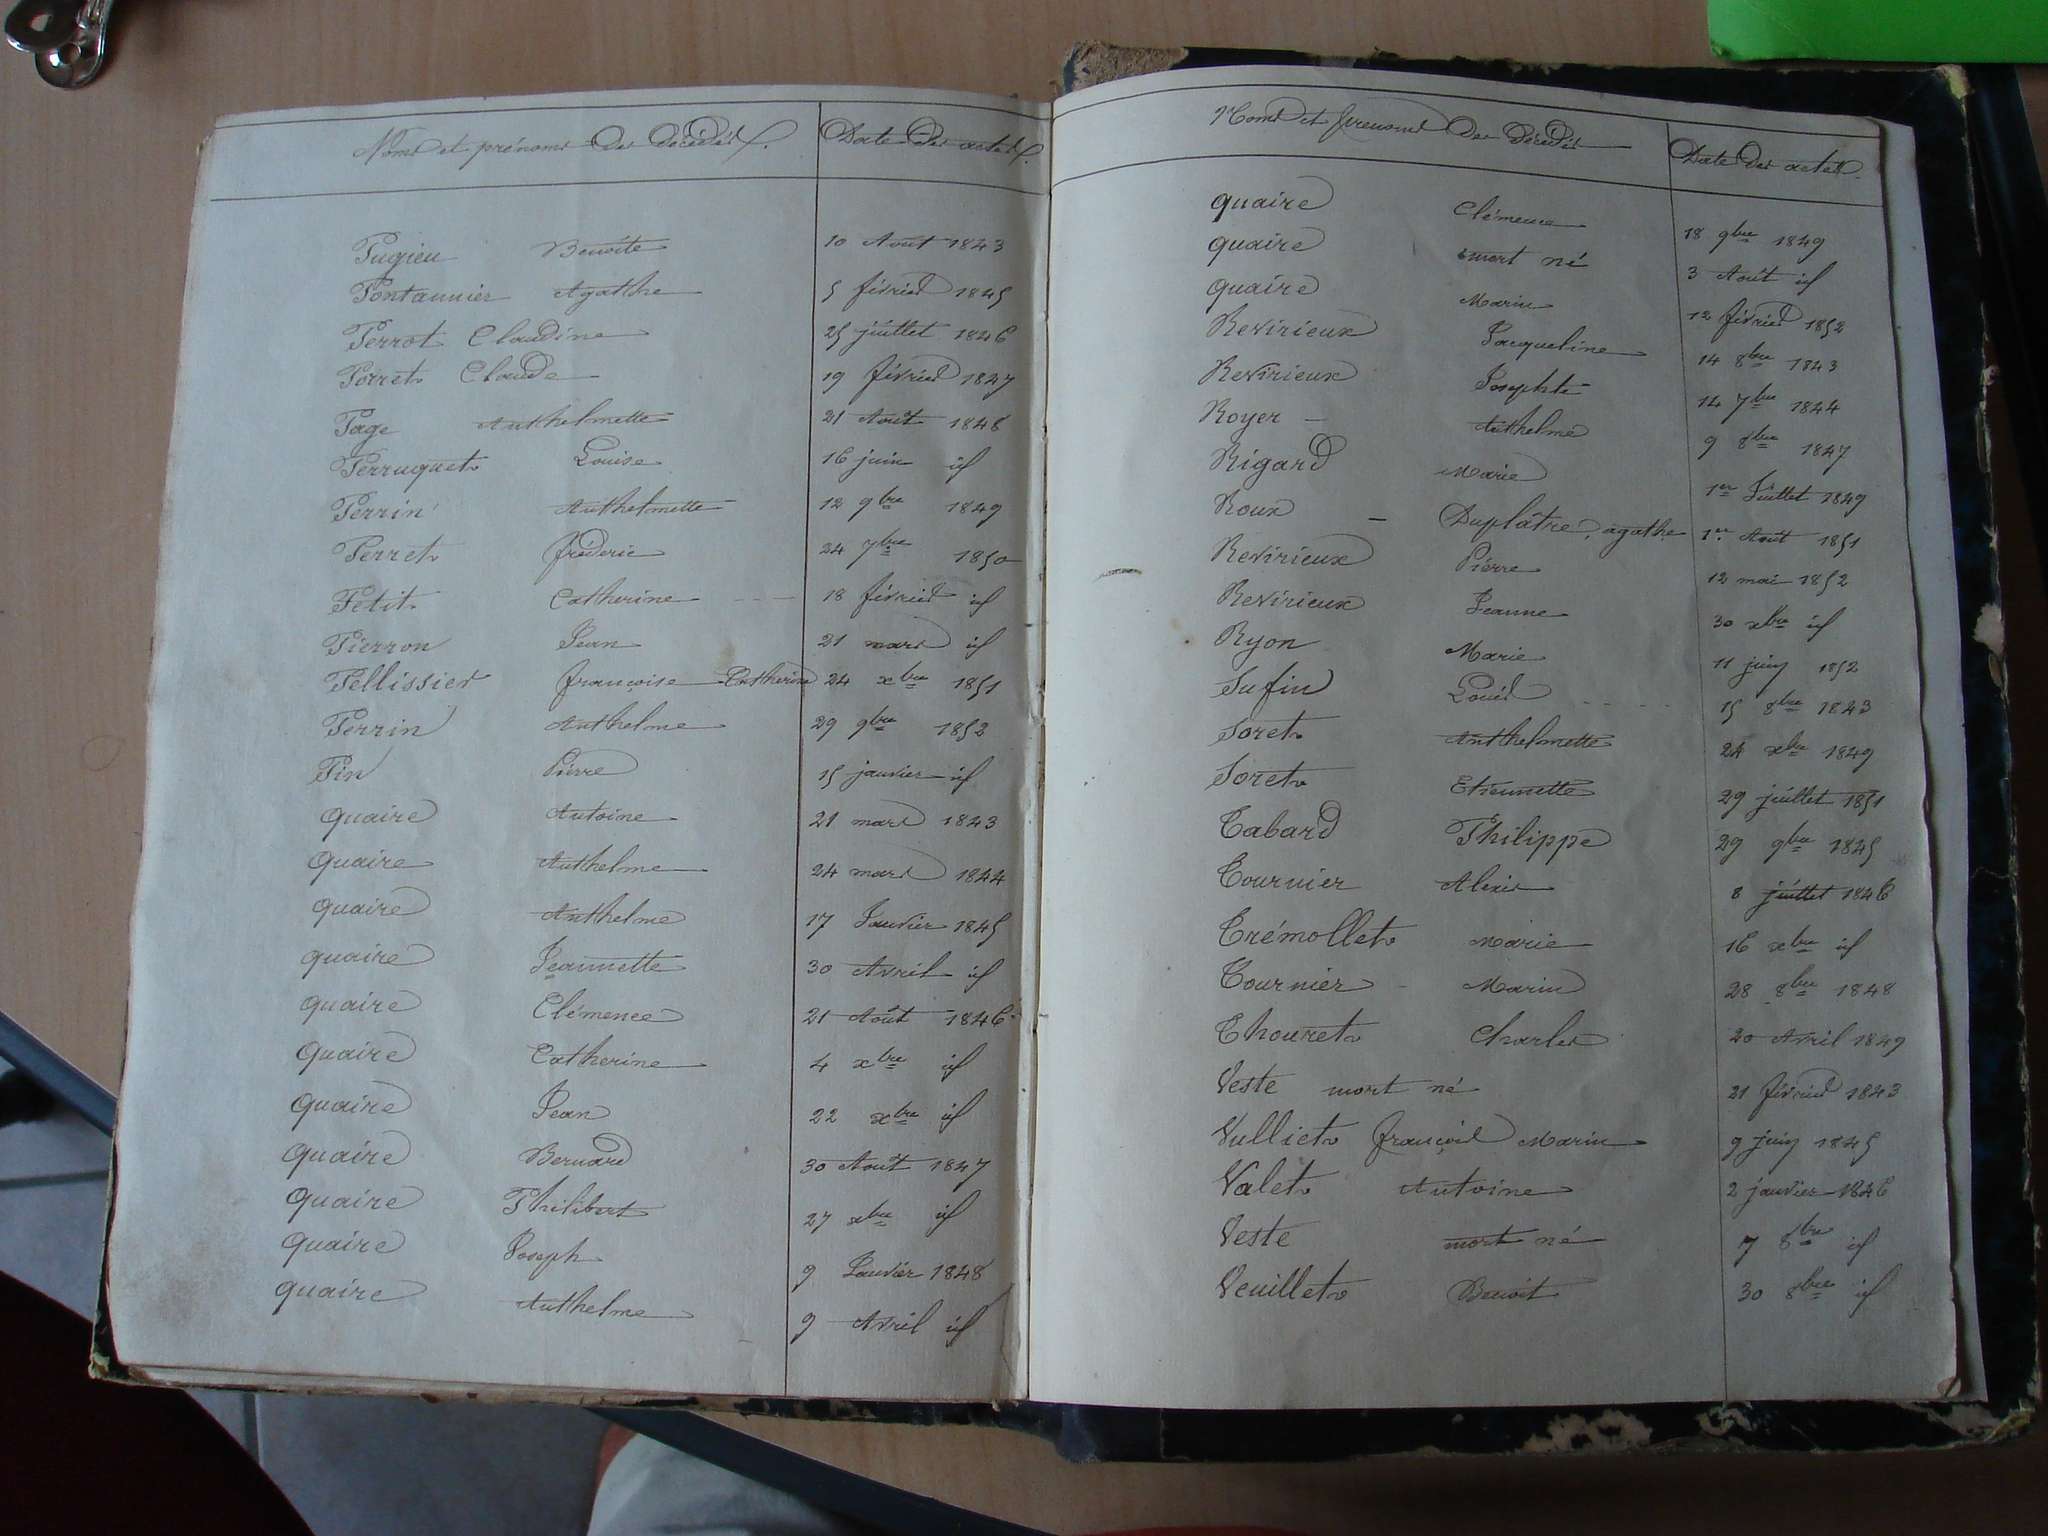 Noms et prénoms des décédés. Date des actes.
Pugieu Benoîte 10 Août 1843
Pontannier Agathe 5 février 1845
Perrot Claudine 25 juillet 1846
Porret Claude 19 février 1847
Page Anthelmette 21 Août 1848
Perruquet Louise 16 juin id
Perrin Anthelmette 12 9bre 1849
Perret fréderic 24 7bre 1850
Petit Catherine 18 février id
Pierron Jean 21 mars id
Pellissier françoise Catherine 24 xbre 1851
Perrin Anthelme 29 9bre 1852
Pin Pierre 15 janvier id
quaire Antoine 21 mars 1843
quaire Anthelme 24 mars 1844
quaire Anthelme 17 Janvier 1845
quaire Jeannette 30 Avril id
quaire Clémence 21 Août 1846
quaire Catherine 4 xbre id
quaire Jean 22 xbre id
quaire Bernard 30 Août 1847
quaire Philibert 27 xbre id
quaire Joseph 9 Janvier 1848
quaire Anthelme 9 Avril id
Noms et prénoms des décédés Date des actes.
quaire Clémence 18 9bre 1849
quaire mort né 3 Août id
quaire Marie 12 février 1852
Revirieux Jacqueline 14 8bre 1843
Revirieux Josephte 14 7bre 1844
Royer - Anthelme 9 8bre 1847
Rigard Marie 1er Juillet 1849
Roux - Duplâtre, agathe 1er Août 1851
Revirieux Pierre 12 mai 1852
Revirieux Jeanne 30 xbre id
Ryon Marie 11 juin 1852
Sufin Louis 15 8bre 1843
Soret Anthelmette 24 xbre 1849
Soret Etiennette 29 juillet 1851
Tabard Philippe 29 9bre 1845
Tournier Alexis 8 juillet 1846
Trémollet Marie 16 xbre id
Tournier - Marie 28 8bre 1848
Thouret Charles 20 Avril 1849
Veste mort né 21 février 1843
Vulliet françois Marie 9 juin 1845
Valet Antoine 2 janvier 1846
Veste mort né 7 8bre id
Veuillet Benoit 30 8bre id